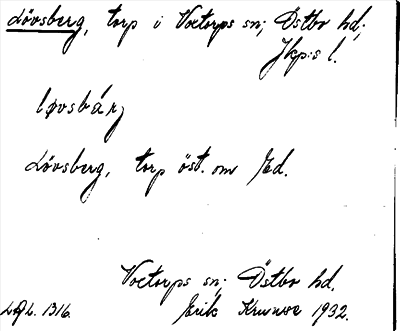 Lövsberg, torp i Voxtorps sn; Östbo hd;
Jkp:s l.
løvsbárj
Lövsberg, torp öst. om Ed.
Voxtorps sn; Östbo hd.
1316. Erik 1932.